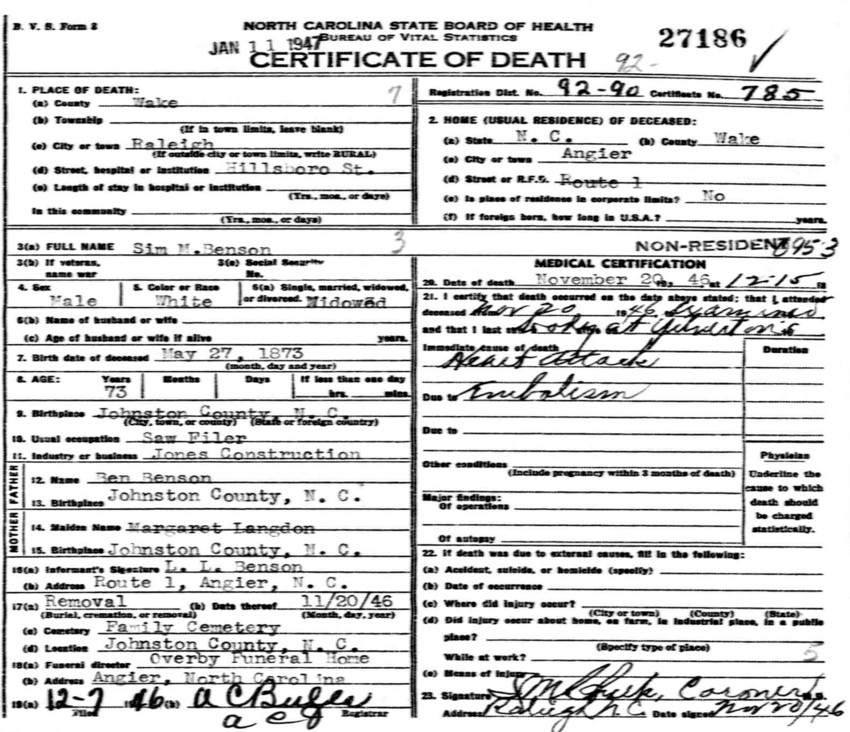 B. V. S. Form 8
NORTH CAROLINA STATE BOARD OF HEALTH
BUREAU OF VITAL STATISTICS
JAN 11 1947
CERTIFICATE OF DEATH
27186
92-
1. PLACE OF DEATH:
7
(a) County Wake
(b) Township
(If in town limits, leave blank)
(c) City or town Raleigh
(If outside city or town limits, write RURAL)
(d) Street, hospital or institution Hillsboro St.
(e) Length of stay in hospital or institution
(Yrs., mos., or days)
In this community
(Yrs., mos., or days)
Registration Dist. No. 92-90 Certificate No. 785
2. HOME (USUAL RESIDENCE) OF DECEASED:
(a) State N. C. (b) County Wake
(c) City or town Angier
(d) Street or R.F.D. Route 1
(e) Is place of residence in corporate limits? No
(f) If foreign born, how long in U.S.A.? years.
3(a) FULL NAME Sim M.Benson
3
3(b) If veteran, name war
3(c) Social Security No.
4. Sex
Male
5. Color or Race
White
6(a) Single, married, widowed, or divorced. Widowed
6(b) Name of husband or wife
(c) Age of husband or wife if alive years.
7. Birth date of deceased May 27, 1873
(month, day and year)
8. AGE: Years Months Days If less than one day
73 hrs. mins.
9. Birthplace Johnston County, N. C.
(City, town, or county) (State or foreign country)
10. Usual occupation Saw Filer
11. Industry or business Jones Construction
FATHER
12. Name Ben Benson
13. Birthplace Johnston County, N. C.
MOTHER
14. Maiden Name Margaret Langdon
15. Birthplace Johnston County, N. C.
16(a) Informant's Signature L. L. Benson
(b) Address Route 1, Angier, N. C.
17(a) Removal (b) Date thereof 11/20/46
(Burial, cremation, or removal) (Month, day, year)
(c) Cemetery Family Cemetery
(d) Location Johnston County, N. C.
18(a) Funeral director Overby Funeral Home
(b) Address Angier, North Carolina
19(a) 12-7 1946 (b) A C
Filed Registrar
NON-RESIDENT 953
MEDICAL CERTIFICATION
20. Date of death November 20, 19 46 at 12-15
21. I certify that death occurred on the date above stated; that I attended
deceased Nov 20 1946 Examined
and that I last saw body at
Immediate cause of death
Heart Attack
Duration
Due to Embolism
Due to
Other conditions
(Include pregnancy within 3 months of death)
Major findings:
Of operations
Of autopsy
Physician
Underline the cause to which death should be charged statistically.
22. If death was due to external causes, fill in the following:
(a) Accident, suicide, or homicide (specify)
(b) Date of occurrence
(c) Where did injury occur?
(City or town) (County) (State)
(d) Did injury occur about home, on farm, in industrial place, in a public place?
(Specify type of place)
While at work?
5
(e) Means of injury
23. Signature Coroner M.D.
Address Raleigh N.C. Date signed Nov 20/46